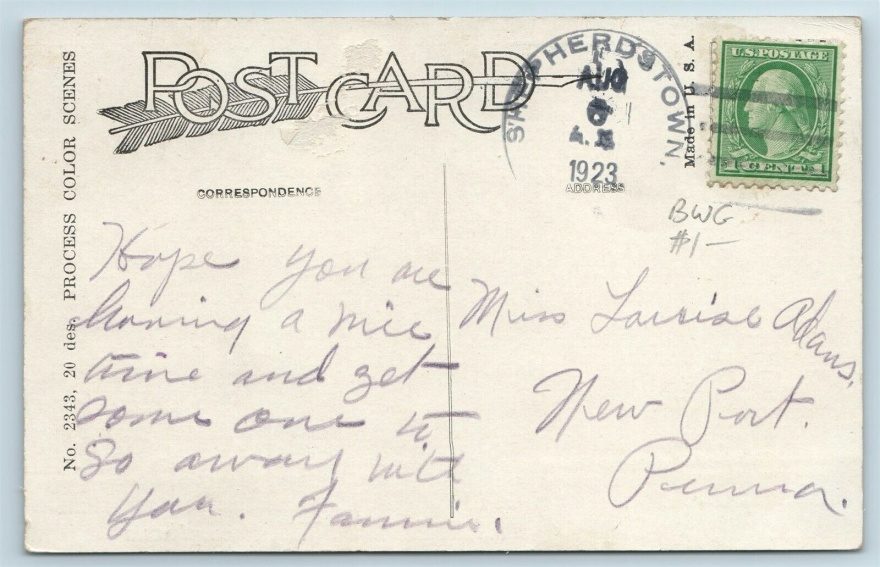 POST CARD
SHEPHERDSTOWN,
AUG
6
A.M
1923
U.S. POSTAGE
1 CENT 1
Made in U. S. A.
No. 2343, 20 des. PROCESS COLOR SCENES
CORRESPONDENCE
ADDRESS
BWG
#1—
Hope you are
having a nice
time and get
some one to
go away with
you. Fannie.
Miss Louise Adams,
New Port.
Penna.